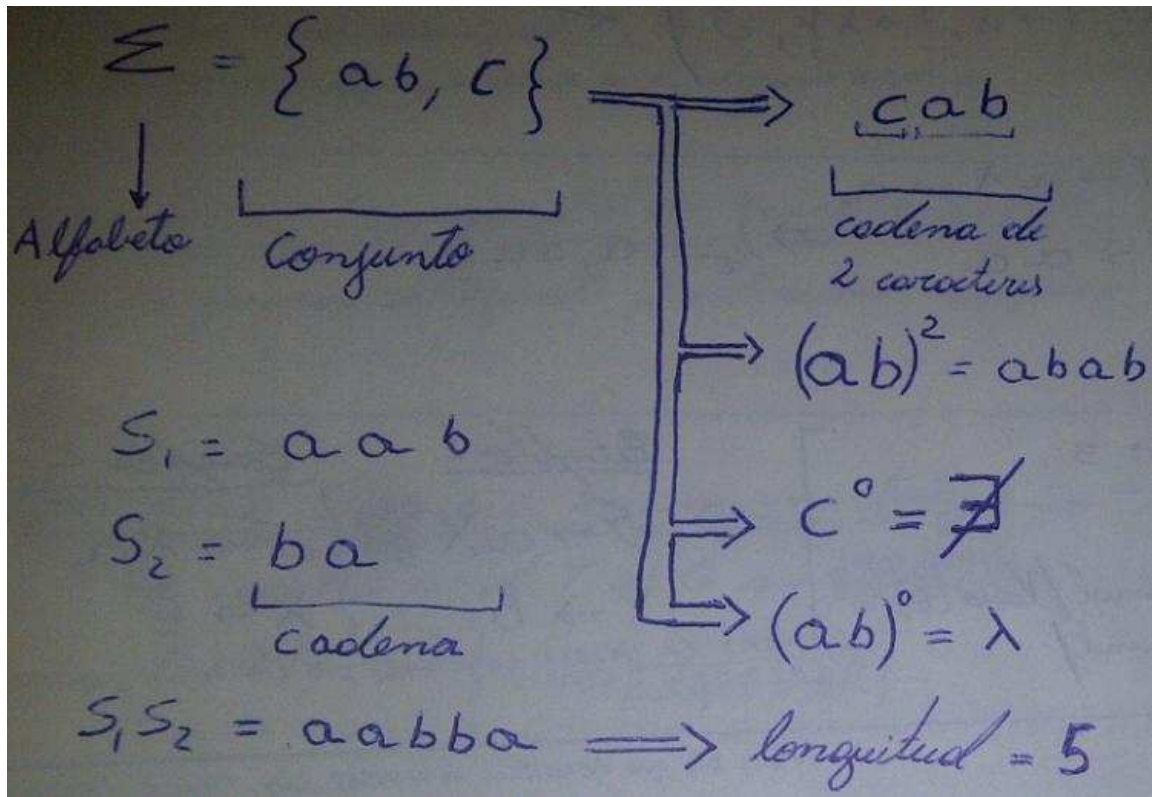 Σ = { ab, c } ⟹ cab
Alfabeto
Conjunto
cadena de
2 caracteres
(ab)² = abab
S₁ = aab
S₂ = ba
cadena
c⁰ = ∄
(ab)⁰ = λ
S₁S₂ = aabba ⟹ longuitud = 5